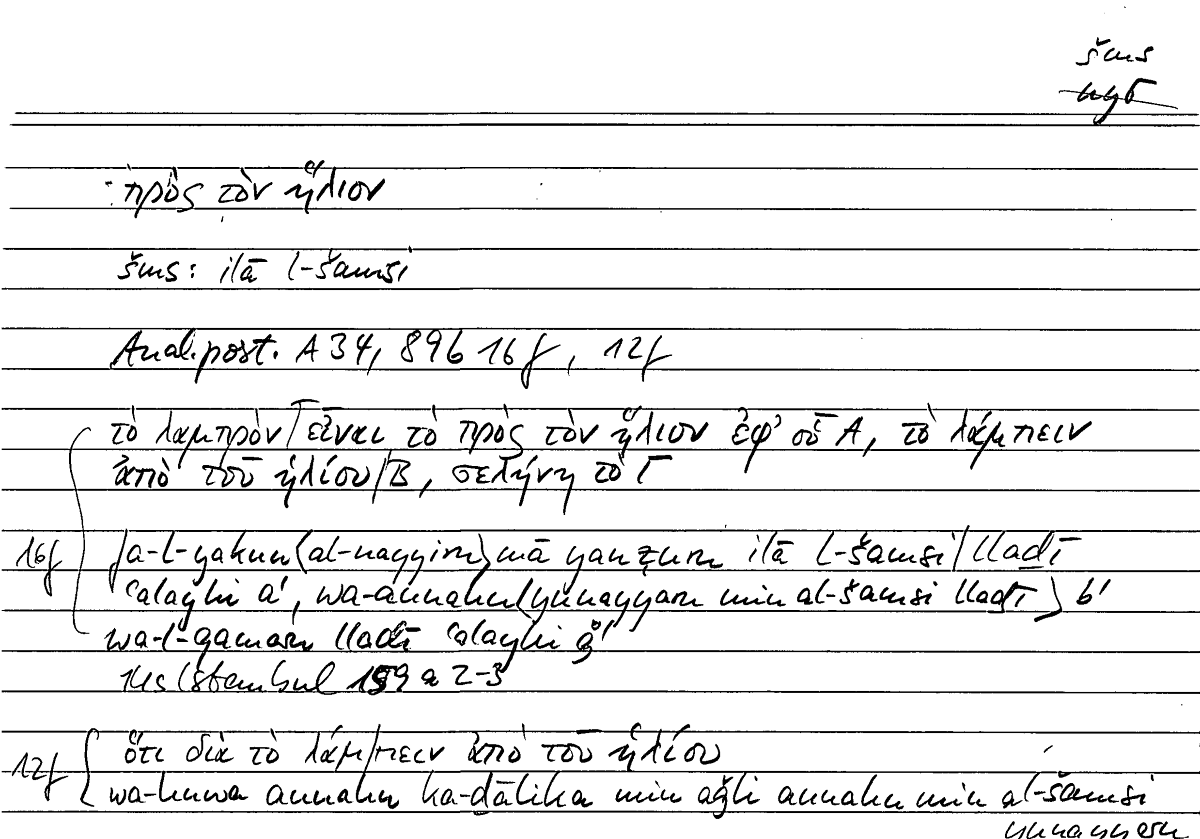 šms
πρὸς τὸν ἥλιον
šms: ilā l-šamsi
Anal.post. A 34, 89b 16f, 12f
τὸ λαμπρὸν/εἶναι τὸ πρὸς τὸν ἥλιον ἐφ' οὗ A, τὸ λάμπειν
ἀπὸ τοῦ ἡλίου/B, σελήνη τὸ Γ
16f
fa-l-yakun (al-nayyiru) mā yanẓuru ilā l-šamsi/lladī
ʿalayhi a', wa-annahu (yunayyaru min al-šamsi lladī) b'
wa-l-qamaru lladī ʿalayhi ǧ'
Hs Istanbul 159 a 2-3
12f
ὅτι διὰ τὸ λάμ/πειν ἀπὸ τοῦ ἡλίου
wa-huwa annahu ka-ḏālika min aǧli annahu min al-šamsi